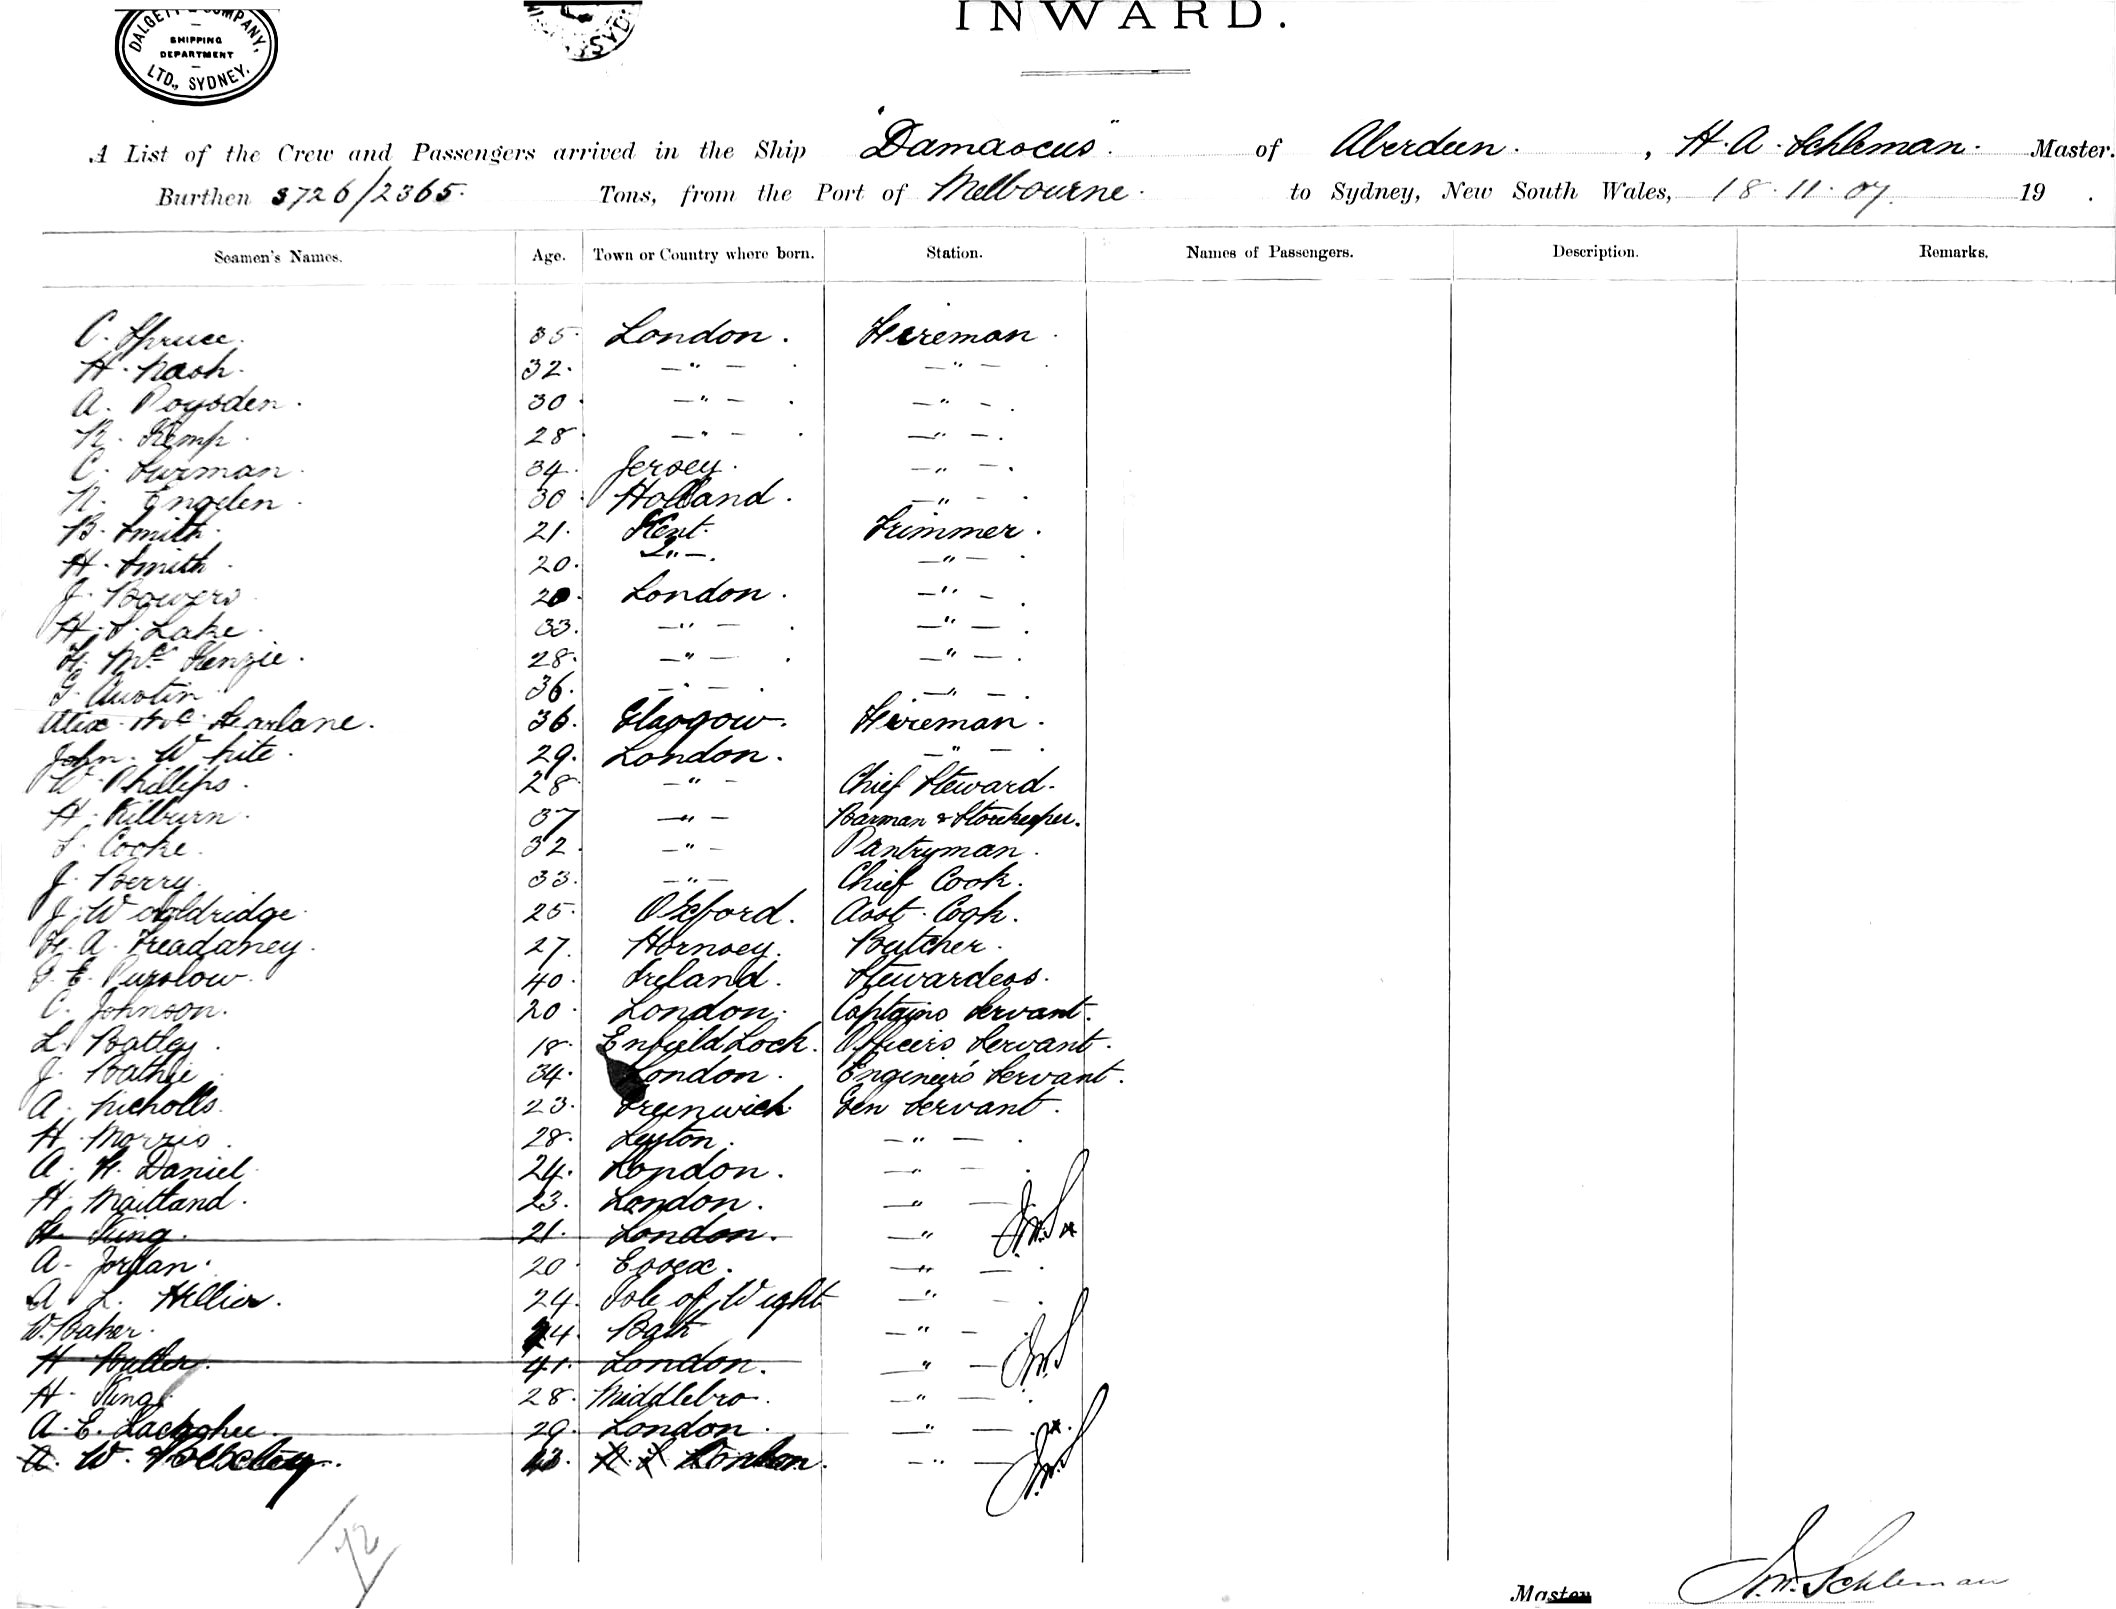 DALGETY & COMPANY,
SHIPPING
DEPARTMENT
LTD., SYDNEY.
INWARD.
A List of the Crew and Passengers arrived in the Ship "Damascus". of Aberdeen. , H. A. Schleman. Master.
Burthen 3726/2365. Tons, from the Port of Melbourne. to Sydney, New South Wales, 18.11.07. 19 .
Seamen's Names. Age. Town or Country where born. Station. Names of Passengers. Description. Remarks.
C. Spruce. 35. London. Fireman.
H. Nash. 32. —"— . —"— .
A. Poysden. 30. —"— . —"— .
R. Kemp. 28. —"— . —"— .
C. Surman. 34. Jersey. —"— .
N. Engden. 30. Holland. —"— .
B. Smith. 21. Kent. Trimmer.
H. Smith. 20. —"— . —"— .
J. Bowers. 20. London. —"— .
H. S. Lake. 33. —"— . —"— .
F. McKenzie. 28. —"— . —"— .
G. Austin. 36. —"— . —"— .
Alex. McFarlane. 36. Glasgow. Fireman.
John. White. 29. London. —"— .
W. Phillips. 28. —"— Chief Steward.
H. Kilburn. 37 —"— Barman & Storekeeper.
F. Cooke. 32. —"— Pantryman.
J. Berry. 33. —"— Chief Cook.
J. Wooldridge. 25. Oxford. Asst. Cook.
F. A. Treadaney. 27. Hornsey. Butcher.
E. Purslow. 40. Ireland. Stewardess.
C. Johnson. 20. London. Captains Servant.
L. Batley. 18. Enfield Lock. Officers Servant.
J. Bathie. 34. London. Engineers Servant.
A. Nicholls. 23. Greenwich. Gen Servant.
H. Morris. 28. Leyton. —"— .
A. F. Daniel. 24. London. —"— .
H. Maitland. 23. London. —"—
F. King. 21. London. —"—
A. Jordan. 20. Essex. —"— .
A. L. Hellier. 24. Isle of Wight —"— .
W. Baker. 24. Bath —"— .
H. Butler. 41. London. —"—
H. King. 28. Middlebro. —"— .
A. E. 29. London. —"— .
A. W. London. —"—
72
Master H. A. Schleman